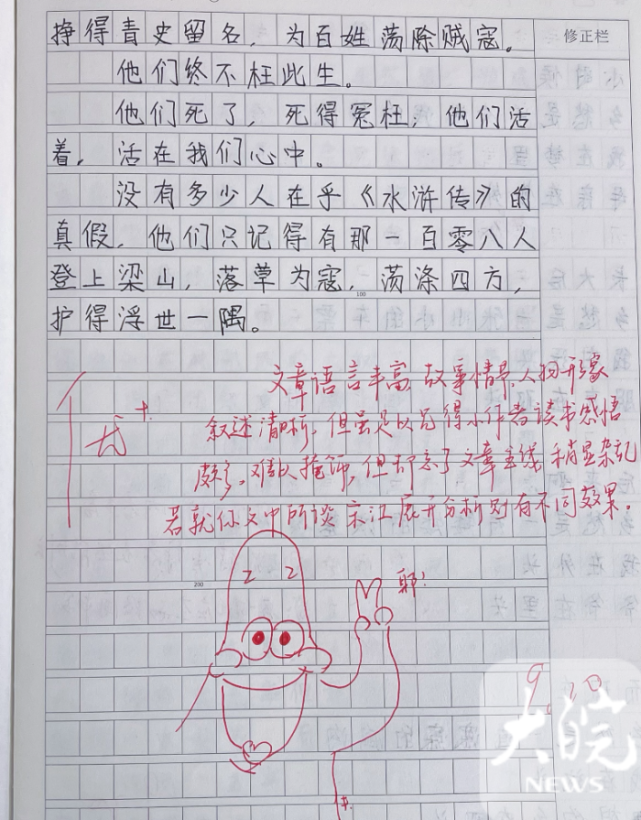 挣得青史留名，为百姓荡除贼寇。
修正栏
他们终不枉此生。
他们死了，死得冤枉，他们活
着，活在我们心中。
没有多少人在乎《水浒传》的
真假，他们只记得有那一百零八人
登上梁山，落草为寇，荡涤四方，
护得浮世一隅。
文章语言丰富，故事情节、人物形象
优+
叙述清晰，但虽足以见得小作者读书感悟
颇多，难以掩饰，但却忘了文章主线，稍显杂乱
若就你文中所谈宋江展开分析则有不同效果。
耶！
9.20
大皖
NEWS